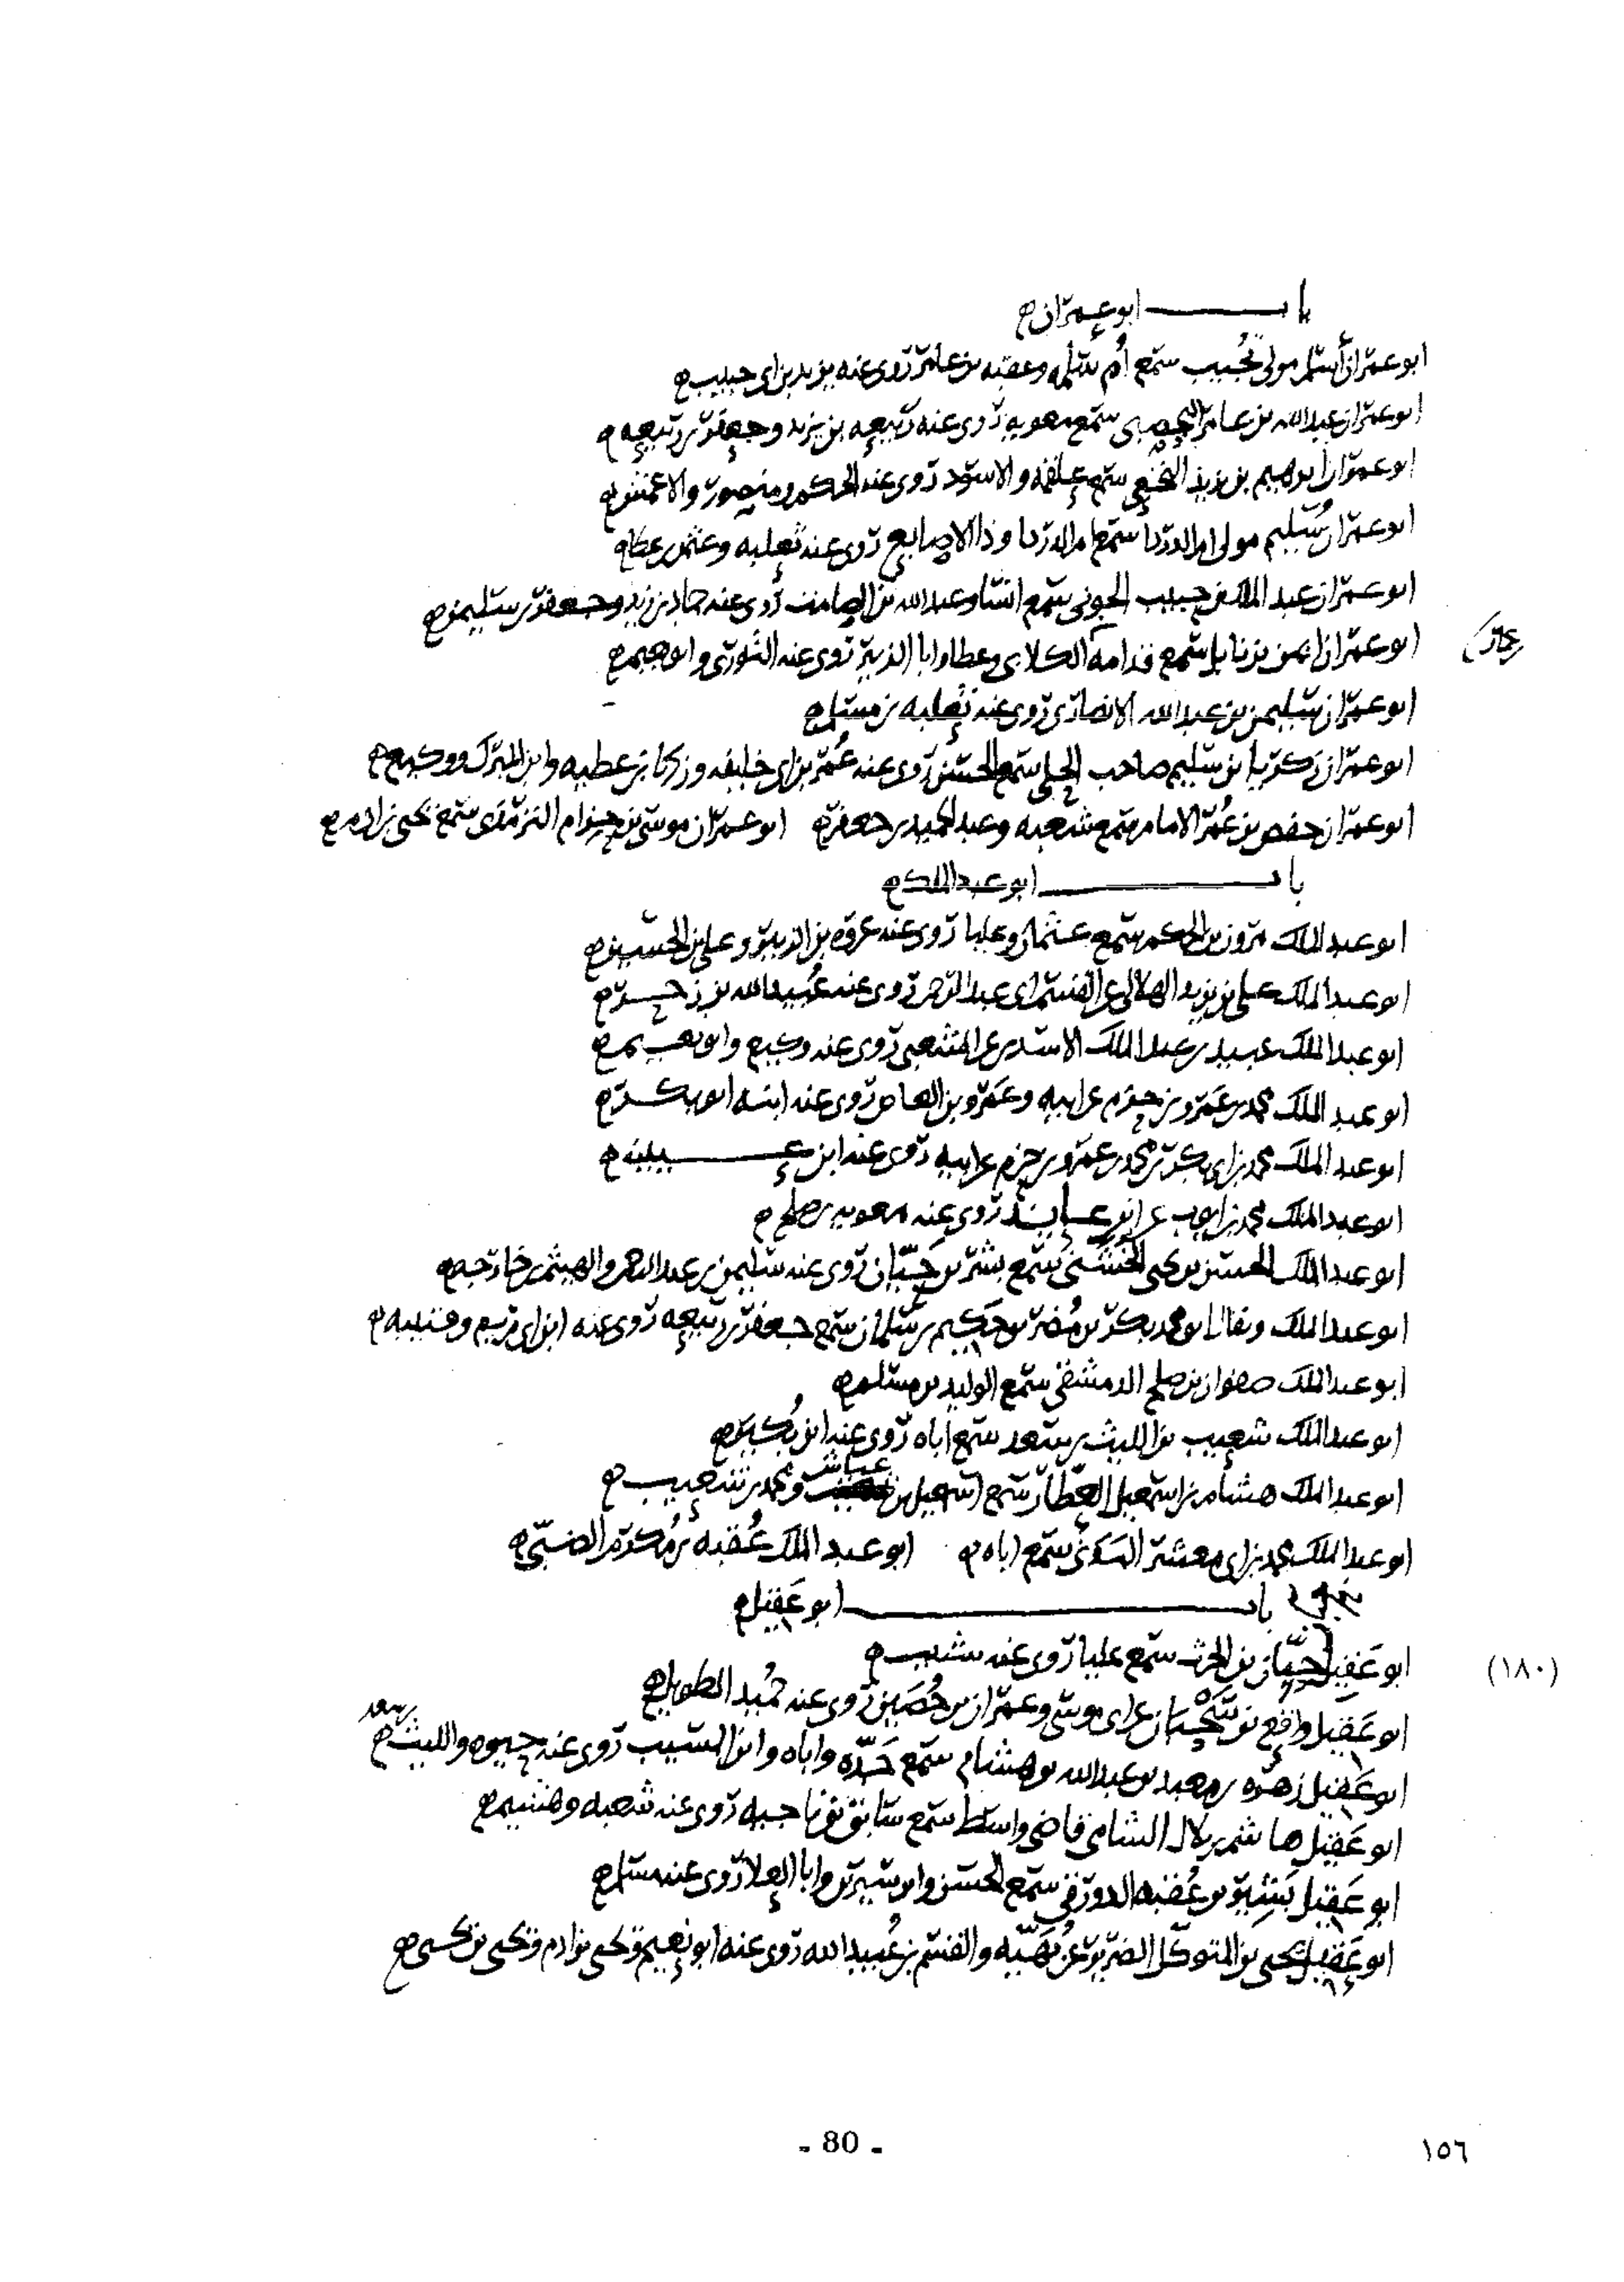 باب ابو عمران
ابو عمران أسلم مولى تجيب سمع أم سلمه وعقبه بن عامر روى عنه يزيد بن ابى حبيب
ابو عمران عبد الله بن عامر اليحصبى سمع معويه روى عنه ربيعه بن يزيد وجعفر بن ربيعه
ابو عمران ابرهيم بن يزيد النخعى سمع علقمه والاسود روى عنه الحكم ومنصور والاعمش
ابو عمران سُليم مولى ام الدردا سمع ام الدردا وذا الاصابع روى عنه ثعلبه وعثمن بن عطا
ابو عمران عبد الملك بن حبيب الجونى سمع انسا وعبد الله بن الصامت روى عنه حماد بن زيد وجعفر بن سليمن
ابو عمران ايمن بن نابل سمع قدامه الكلابى وعطا وابا الزبير روى عنه الثورى وابو نعيم
ابو عمران سليمن بن عبد الله الانصارى روى عنه ثعلبه بن مسلم
ابو عمران زكريا بن سليم صاحب الحلى سمع الحسن روى عنه عُمر بن ابى خليفه وزكريا بن عطيه وابن المبرك ووكيع
ابو عمران حفص بن عُمر الامام سمع شعبه وعبد الحميد بن جعفر ابو عمران موسى بن حزام الترمذى سمع يحيى بن ادم
باب ابو عبد الملك
ابو عبد الملك مروان بن الحكم سمع عثمان وعليا روى عنه عروه بن الزبير وعلى بن الحسين
ابو عبد الملك على بن يزيد الهلالى عن القسم ابى عبد الرحمن روى عنه عُبيد الله بن زحر
ابو عبد الملك عبيد بن عبد الملك الاسدى عن الشعبى روى عنه وكيع وابو نعيم
ابو عبد الملك محمد بن عَمرو بن حزم عن ابيه وعَمرو بن العاص روى عنه ابنه ابو بكر
ابو عبد الملك محمد بن ابى بكر بن محمد بن عمرو بن حزم عن ابيه روى عنه ابن عيينه
ابو عبد الملك محمد بن ايوب عن ابن عايذ روى عنه معويه بن صلح
ابو عبد الملك الحسن بن يحيى الخُشَنى سمع بشر بن حَيّان روى عنه سليمن بن عبد الرحمن والهيثم بن خارجه
ابو عبد الملك ويقال ابو محمد بكر بن مُضر بن حَكيم بن سلمان سمع جعفر بن ربيعه روى عنه ابن ابى مريم وقتيبه
ابو عبد الملك صفوان بن صلح الدمشقى سمع الوليد بن مسلم
ابو عبد الملك شعيب بن الليث بن سعد سمع اباه روى عنه ابن بُكير
ابو عبد الملك هشام بن اسمعيل العطار سمع اسمعيل بن عياش ومحمد بن شعيب
ابو عبد الملك محمد بن ابى معشر السندى سمع اباه ابو عبد الملك عُقبه بن مُكرم الضبّى
باب ابو عَقيل
ابو عَقيل حيّان بن الحرث سمع عليا روى عنه شبيب
(١٨٠)
ابو عَقيل واقع بن سَحبان عن ابى موسى وعمران بن حُصَين روى عنه حُميد الطويل
ابو عَقيل زهره بن معبد بن عبد الله بن هشام سمع جَدّه واباه وابن المسيب روى عنه حيوه والليث بن سعد
ابو عَقيل هاشم بن بلال الشامى قاضى واسط سمع سابق بن ناجيه روى عنه شعبه وهشيم
ابو عَقيل بَشير بن عُقبه الدورقى سمع الحسن وابن سيرين وابا العلا روى عنه مسلم
ابو عَقيل يحيى بن المتوكل الضرير عن بُهَيّه والقسم بن عُبيد الله روى عنه ابو نعيم ويحيى بن ادم ويحيى بن يحيى
- 80 -
١٥٦